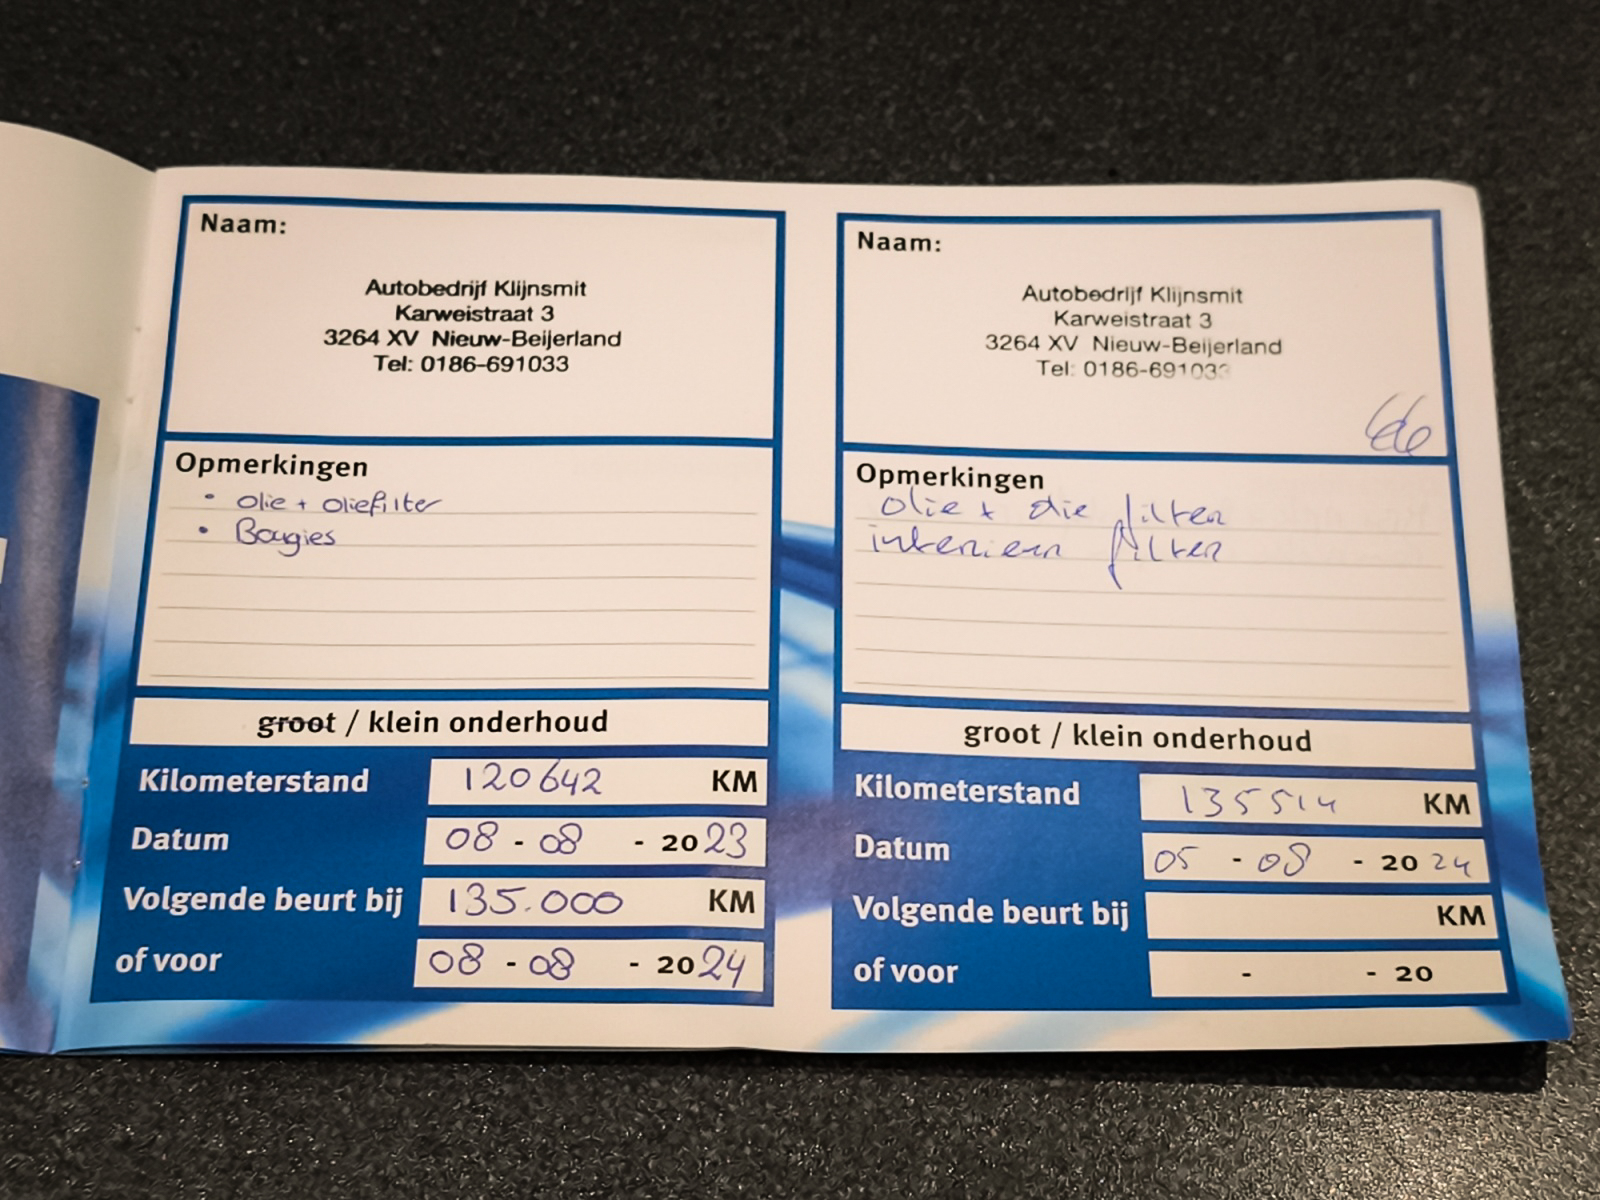 Naam:
Autobedrijf Klijnsmit
Karweistraat 3
3264 XV Nieuw-Beijerland
Tel: 0186-691033
Opmerkingen
• Olie + Oliefilter
• Bougies
groot / klein onderhoud
Kilometerstand 120642 KM
Datum 08 - 08 - 2023
Volgende beurt bij 135.000 KM
of voor 08 - 08 - 2024
Naam:
Autobedrijf Klijnsmit
Karweistraat 3
3264 XV Nieuw-Beijerland
Tel: 0186-691033
Opmerkingen
olie + olie filter
interieur filter
groot / klein onderhoud
Kilometerstand 135514 KM
Datum 05 - 08 - 2024
Volgende beurt bij KM
of voor - - 20